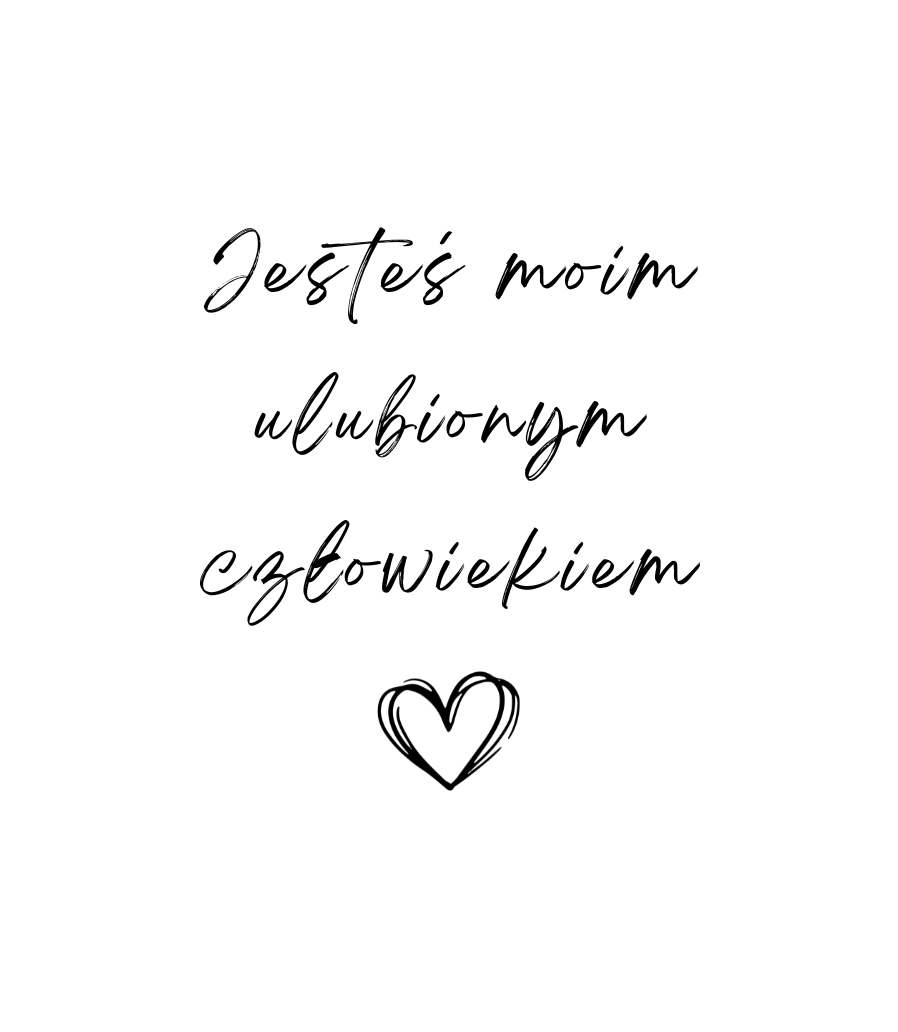 Jesteś moim
ulubionym
człowiekiem